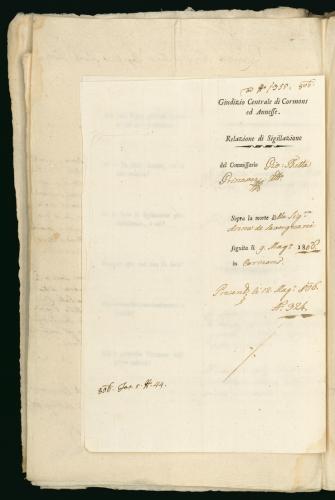 ad N. 1355. 806.
Giudizio Centrale di Cormons
ed Annesse.
Relazione di Sigillazione
del Commissario Gio: Batta
Sopra la morte della Sig.ra
Anna de
Seguita li 9. Mag.o 1806
in Cormons.
Present. li 12 Mag.o 806.
N. 324.
806. Fas. 5. N. 44.